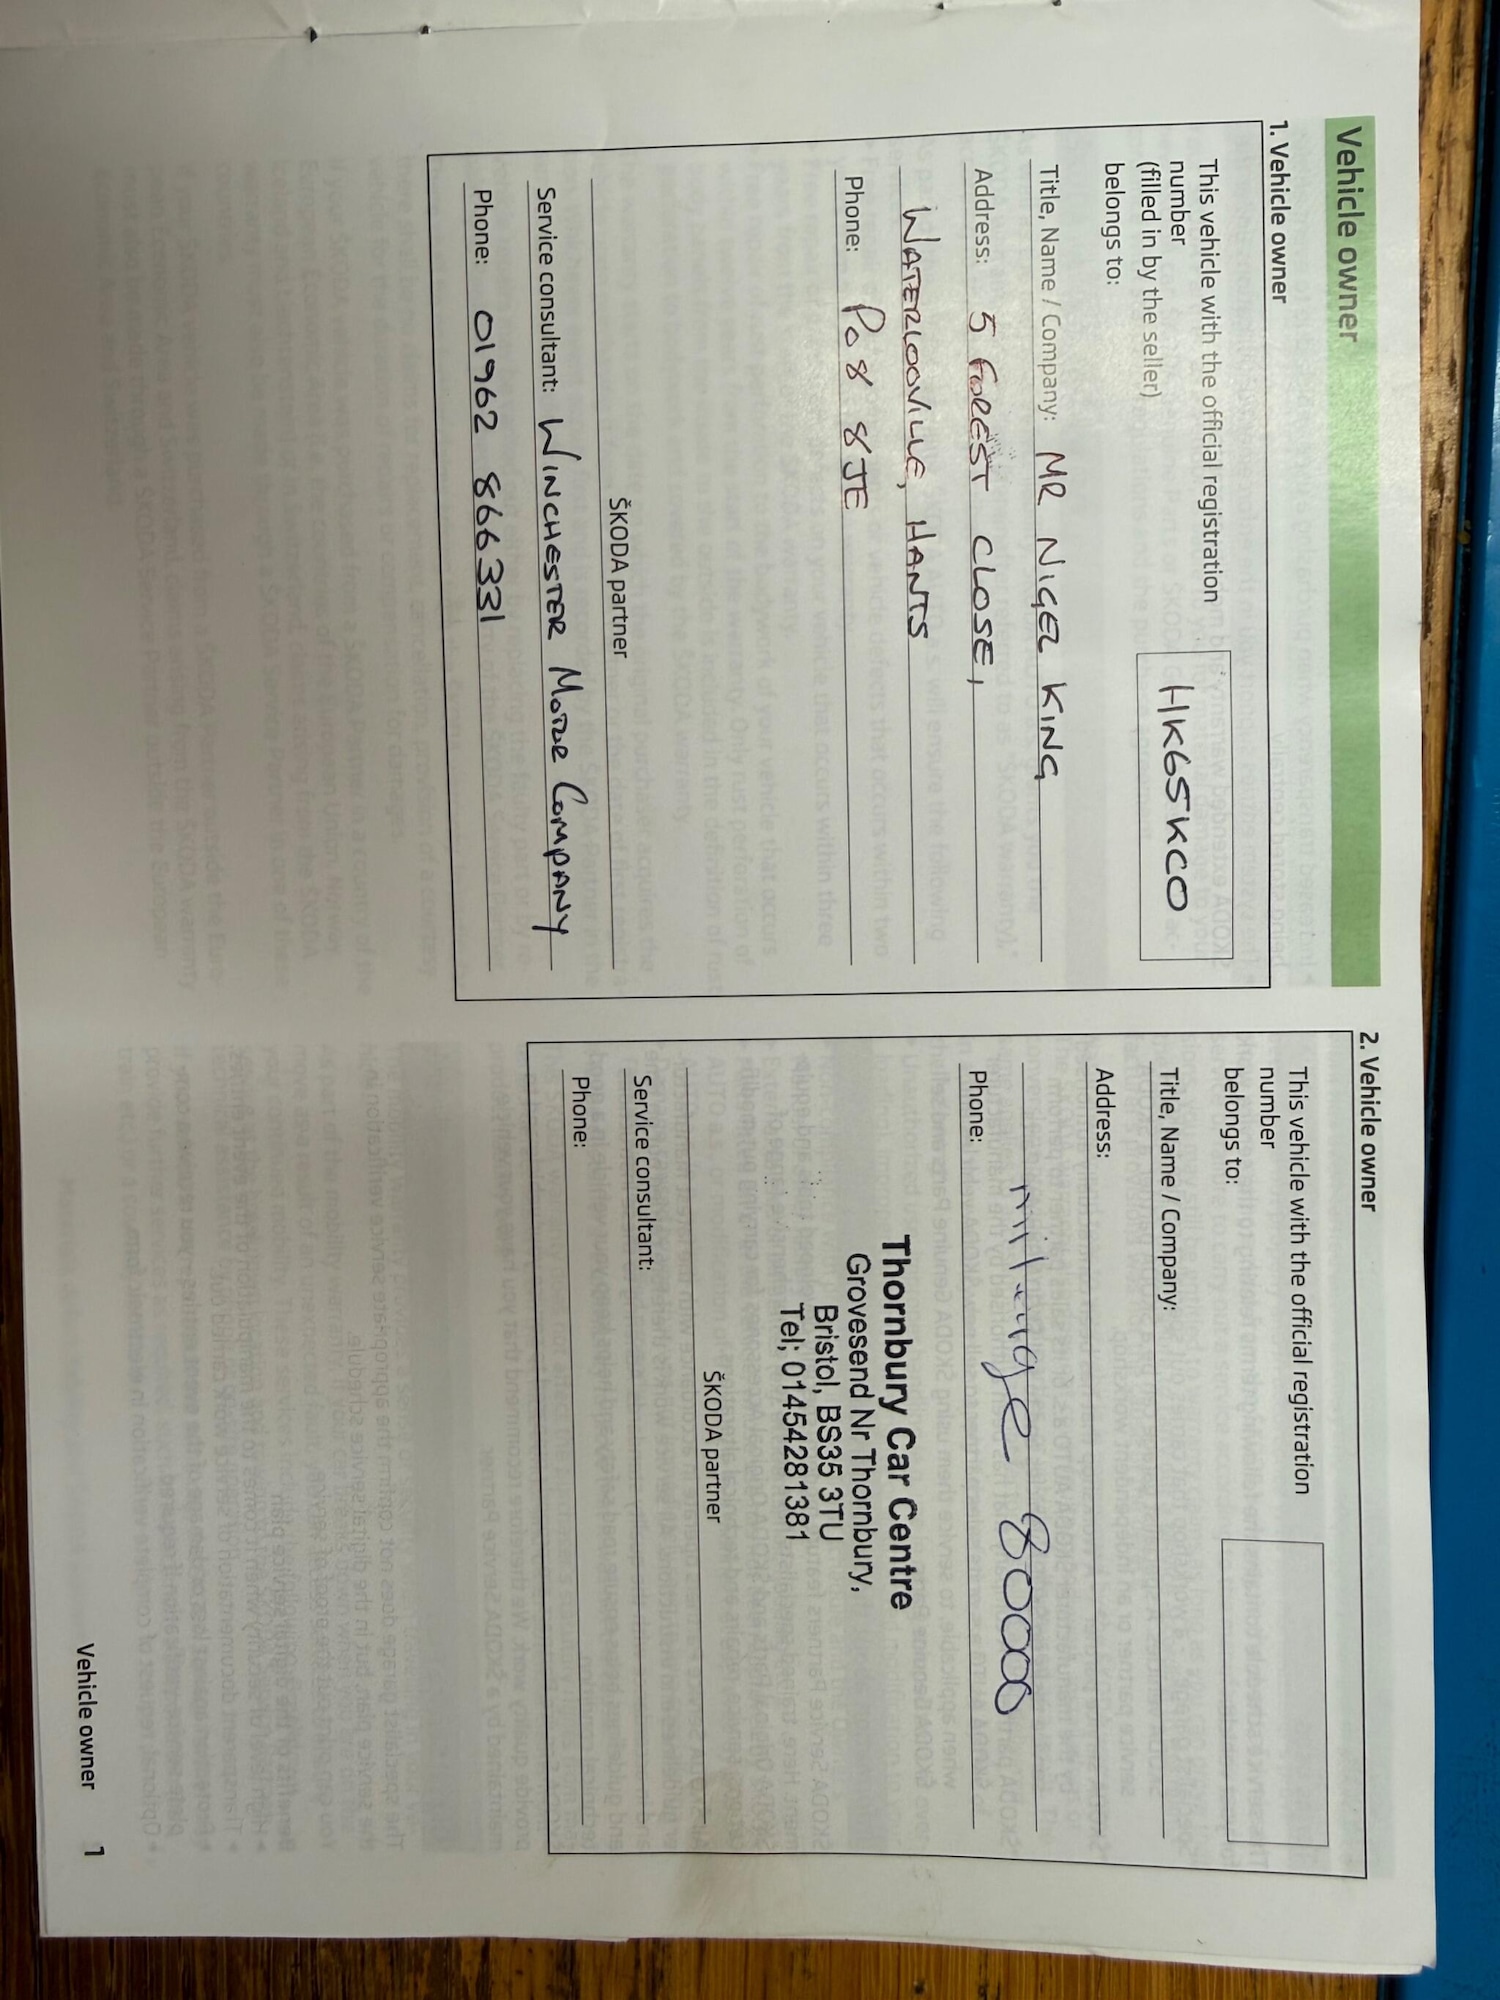 Vehicle owner
1. Vehicle owner
This vehicle with the official registration
number
(filled in by the seller)
belongs to:
HK65KCO
Title, Name / Company: MR NIGEL KING
Address: 5 FOREST CLOSE,
WATERLOOVILLE, HANTS
Phone: PO8 8JE
ŠKODA partner
Service consultant: WINCHESTER MOTOR COMPANY
Phone: 01962 866331
2. Vehicle owner
This vehicle with the official registration
number
belongs to:
Title, Name / Company:
Address:
milage 80000
Phone:
Thornbury Car Centre
Grovesend Nr Thornbury,
Bristol, BS35 3TU
Tel; 01454281381
ŠKODA partner
Service consultant:
Phone:
Vehicle owner 1